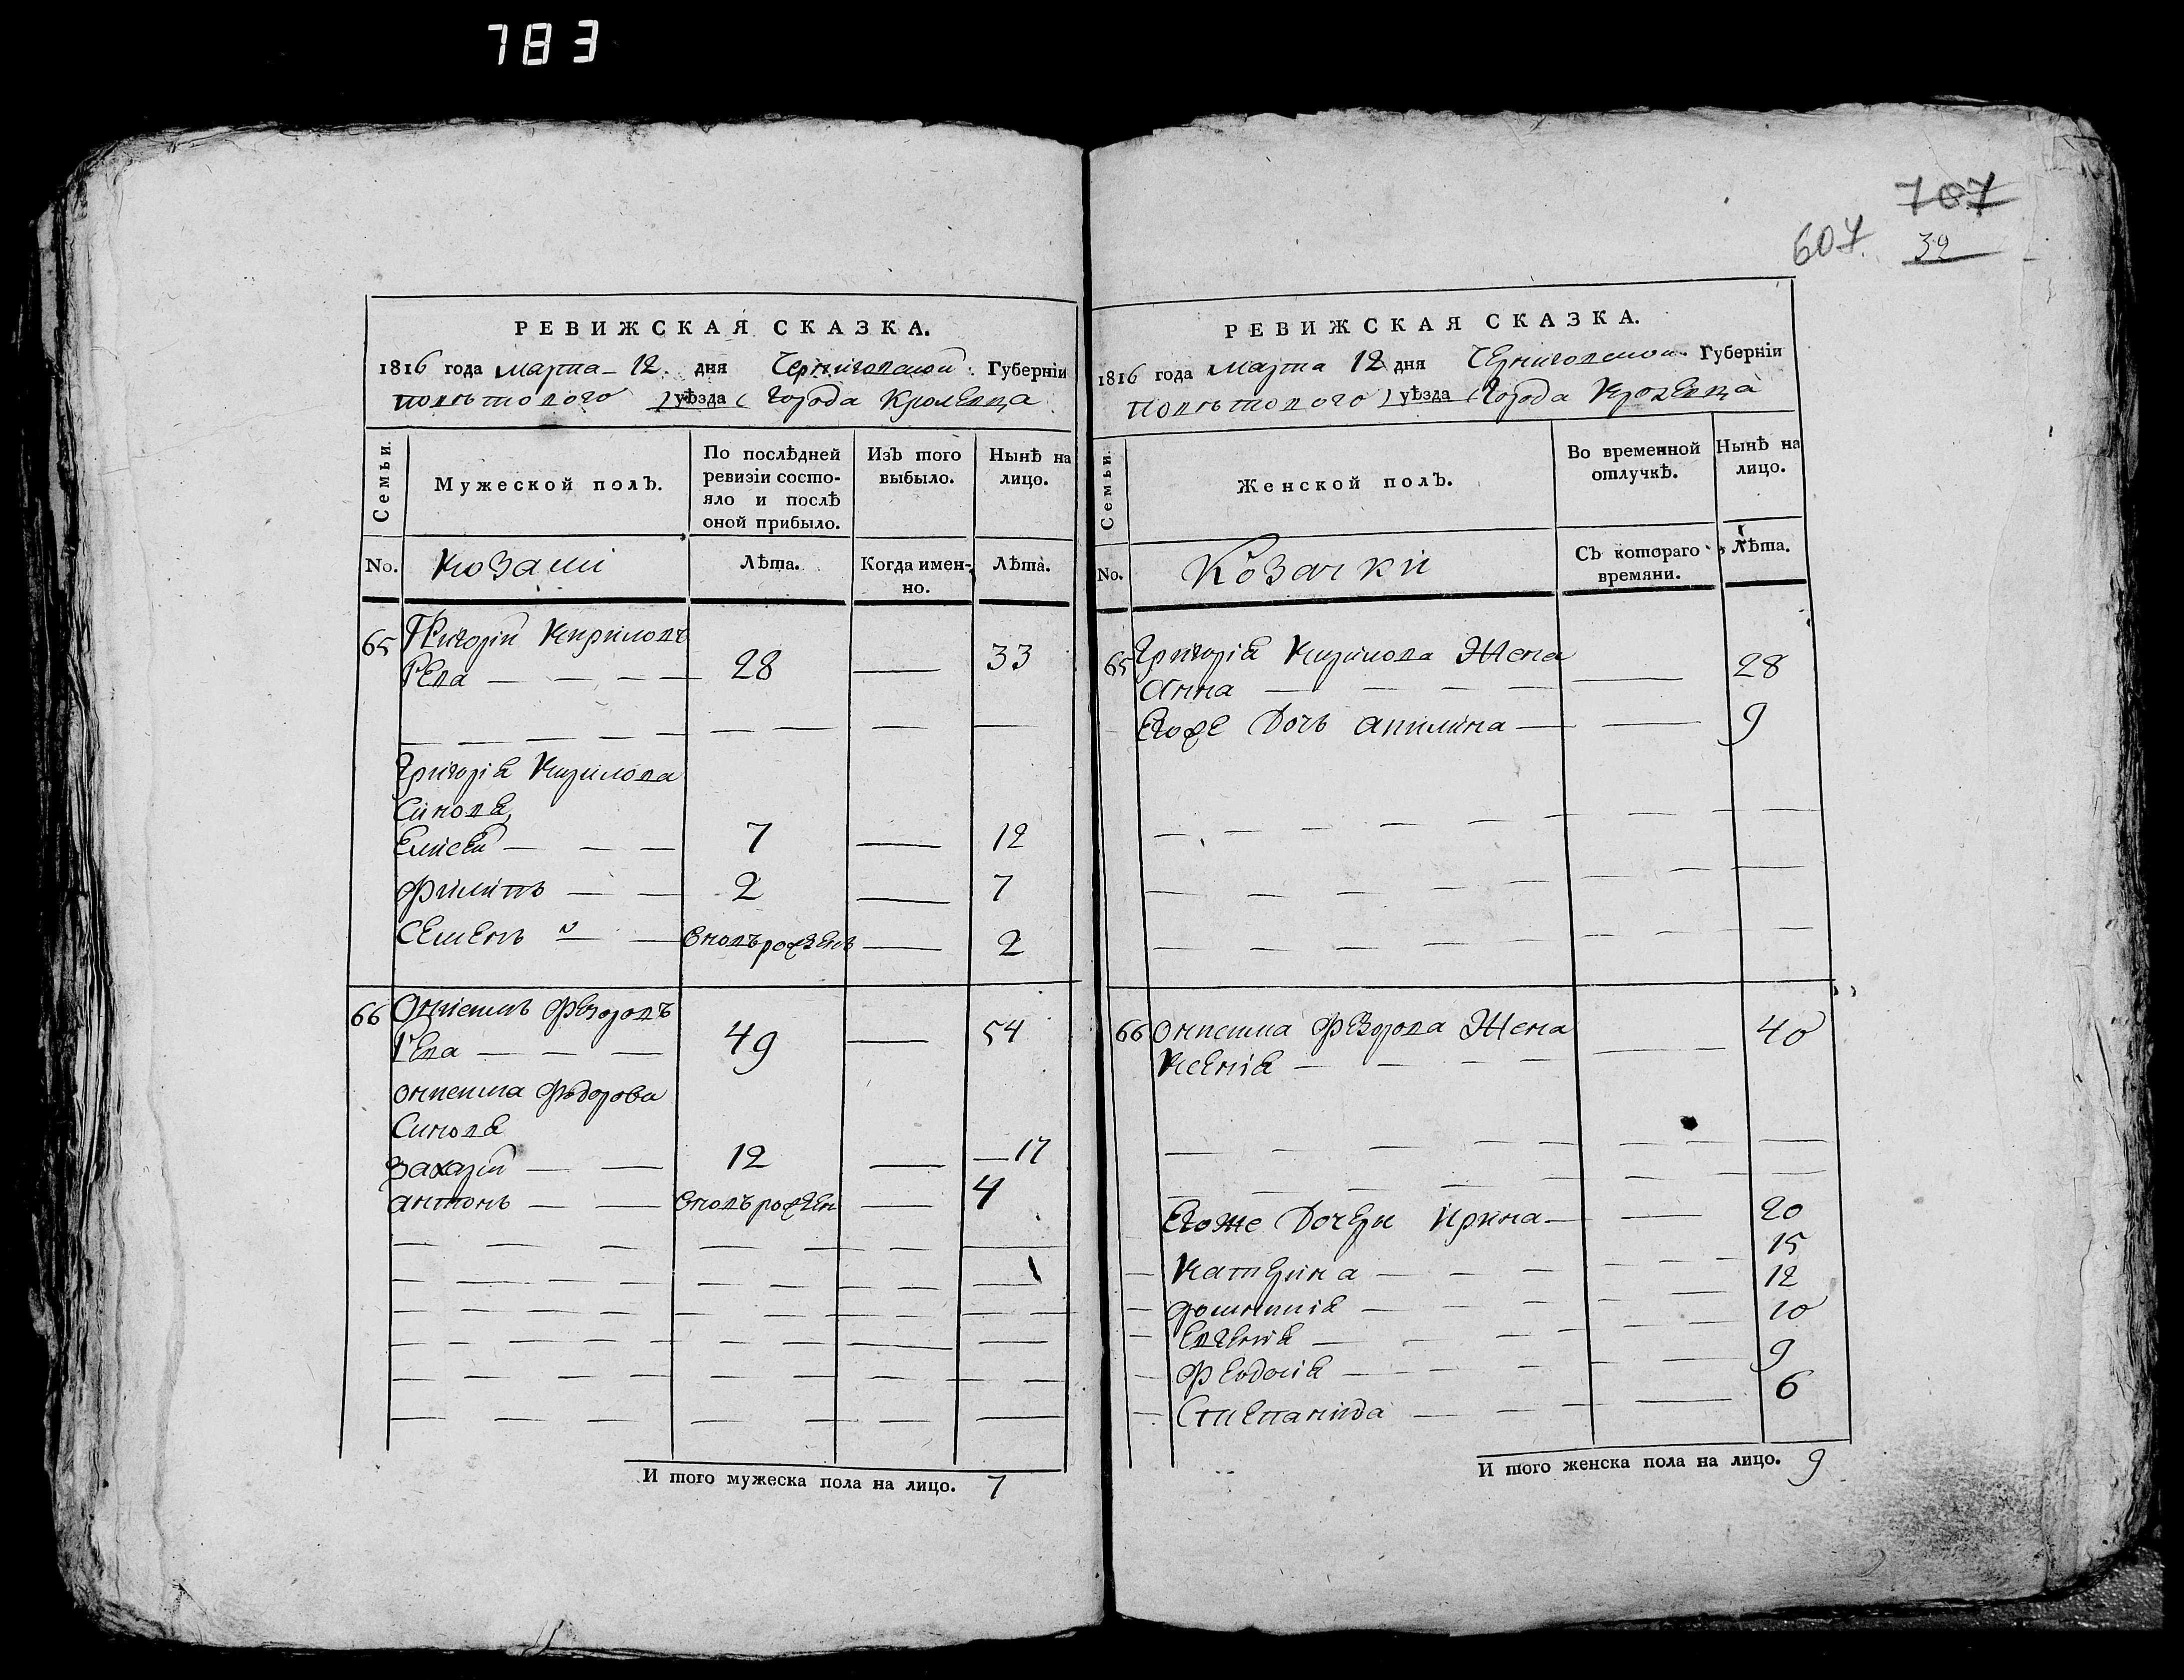 783
707
607.
39
РЕВИЖСКАЯ СКАЗКА.
1816 года марта 12. дня Черниговской Губерніи
поветового уѣзда города Кролевца
Семьи.
Мужеской полЪ.
По послѣдней ревизіи состо-
яло и послѣ оной прибыло.
ИзЪ того выбыло.
Нынѣ на лицо.
No. козаки
Лѣта.
Когда имен-
но.
Лѣта.
65 Григорій Кириловъ
Рева 28 33
Григорія Кирилова
Синовя
Елисей 7 12
Филипъ 2 7
Семенъ вновьрожденъ 2
66 Федоровъ
Рева 49 54
Федорова
Синовя
Захарій 12 17
антонъ вновьрожден 4
И того мужеска пола на лицо. 7
РЕВИЖСКАЯ СКАЗКА.
1816 года марта 12 дня Черниговской Губерніи
поветового уѣзда города Кролевца
Семьи.
Женской полЪ.
Во временной отлучкѣ.
Нынѣ на лицо.
No. Козачки
СЪ котораго времяни.
Лѣта.
65 Григорія Кирилова Жена
Анна 28
Егоже Дочь акилина 9
66 Федорова Жена 40
Ксенія
Егоже Дочери Ирина 20
Катерина 15
12
Евгенія 10
Феодосія 9
Степанида 6
И того женска пола на лицо. 9